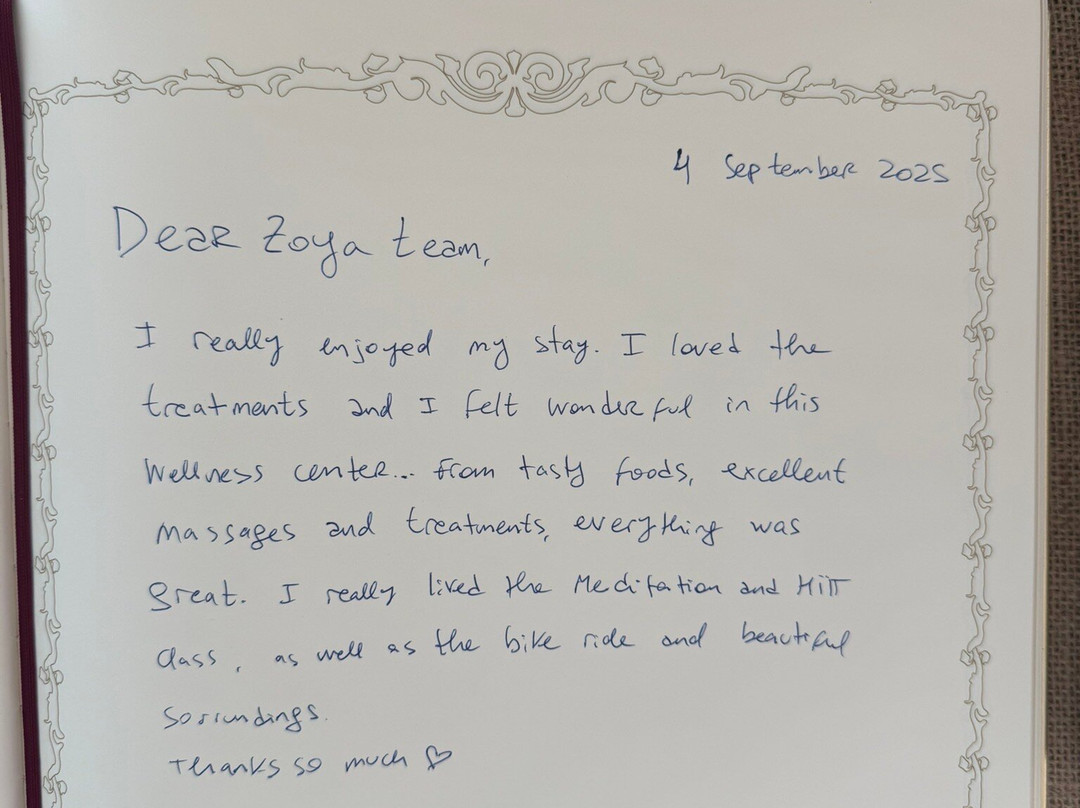 4 September 2025
Dear Zoya team,
I really enjoyed my stay. I loved the
treatments and I felt wonderful in this
wellness center... from tasty foods, excellent
massages and treatments, everything was
great. I really liked the Meditation and HiiT
class, as well as the bike ride and beautiful
sorrundings.
Thanks so much ♡